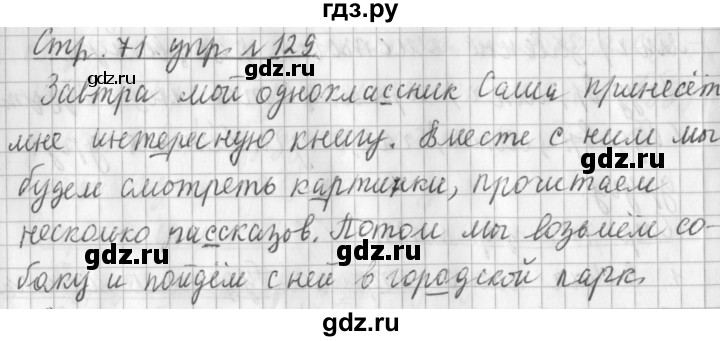 гдз.ру
Стр. 71 упр. №129
gdz.ru gdz.ru
Завтра мой одноклассник Саша принесёт
мне интересную книгу. Вместе с ним мы
gdz.ru gdz.ru
будем смотреть картинки, прочитаем
несколко рассказов. Потом мы возьмём со-
gdz.ru gdz.ru
баку и пойдём с ней в городской парк.
gdz.ru gdz.ru